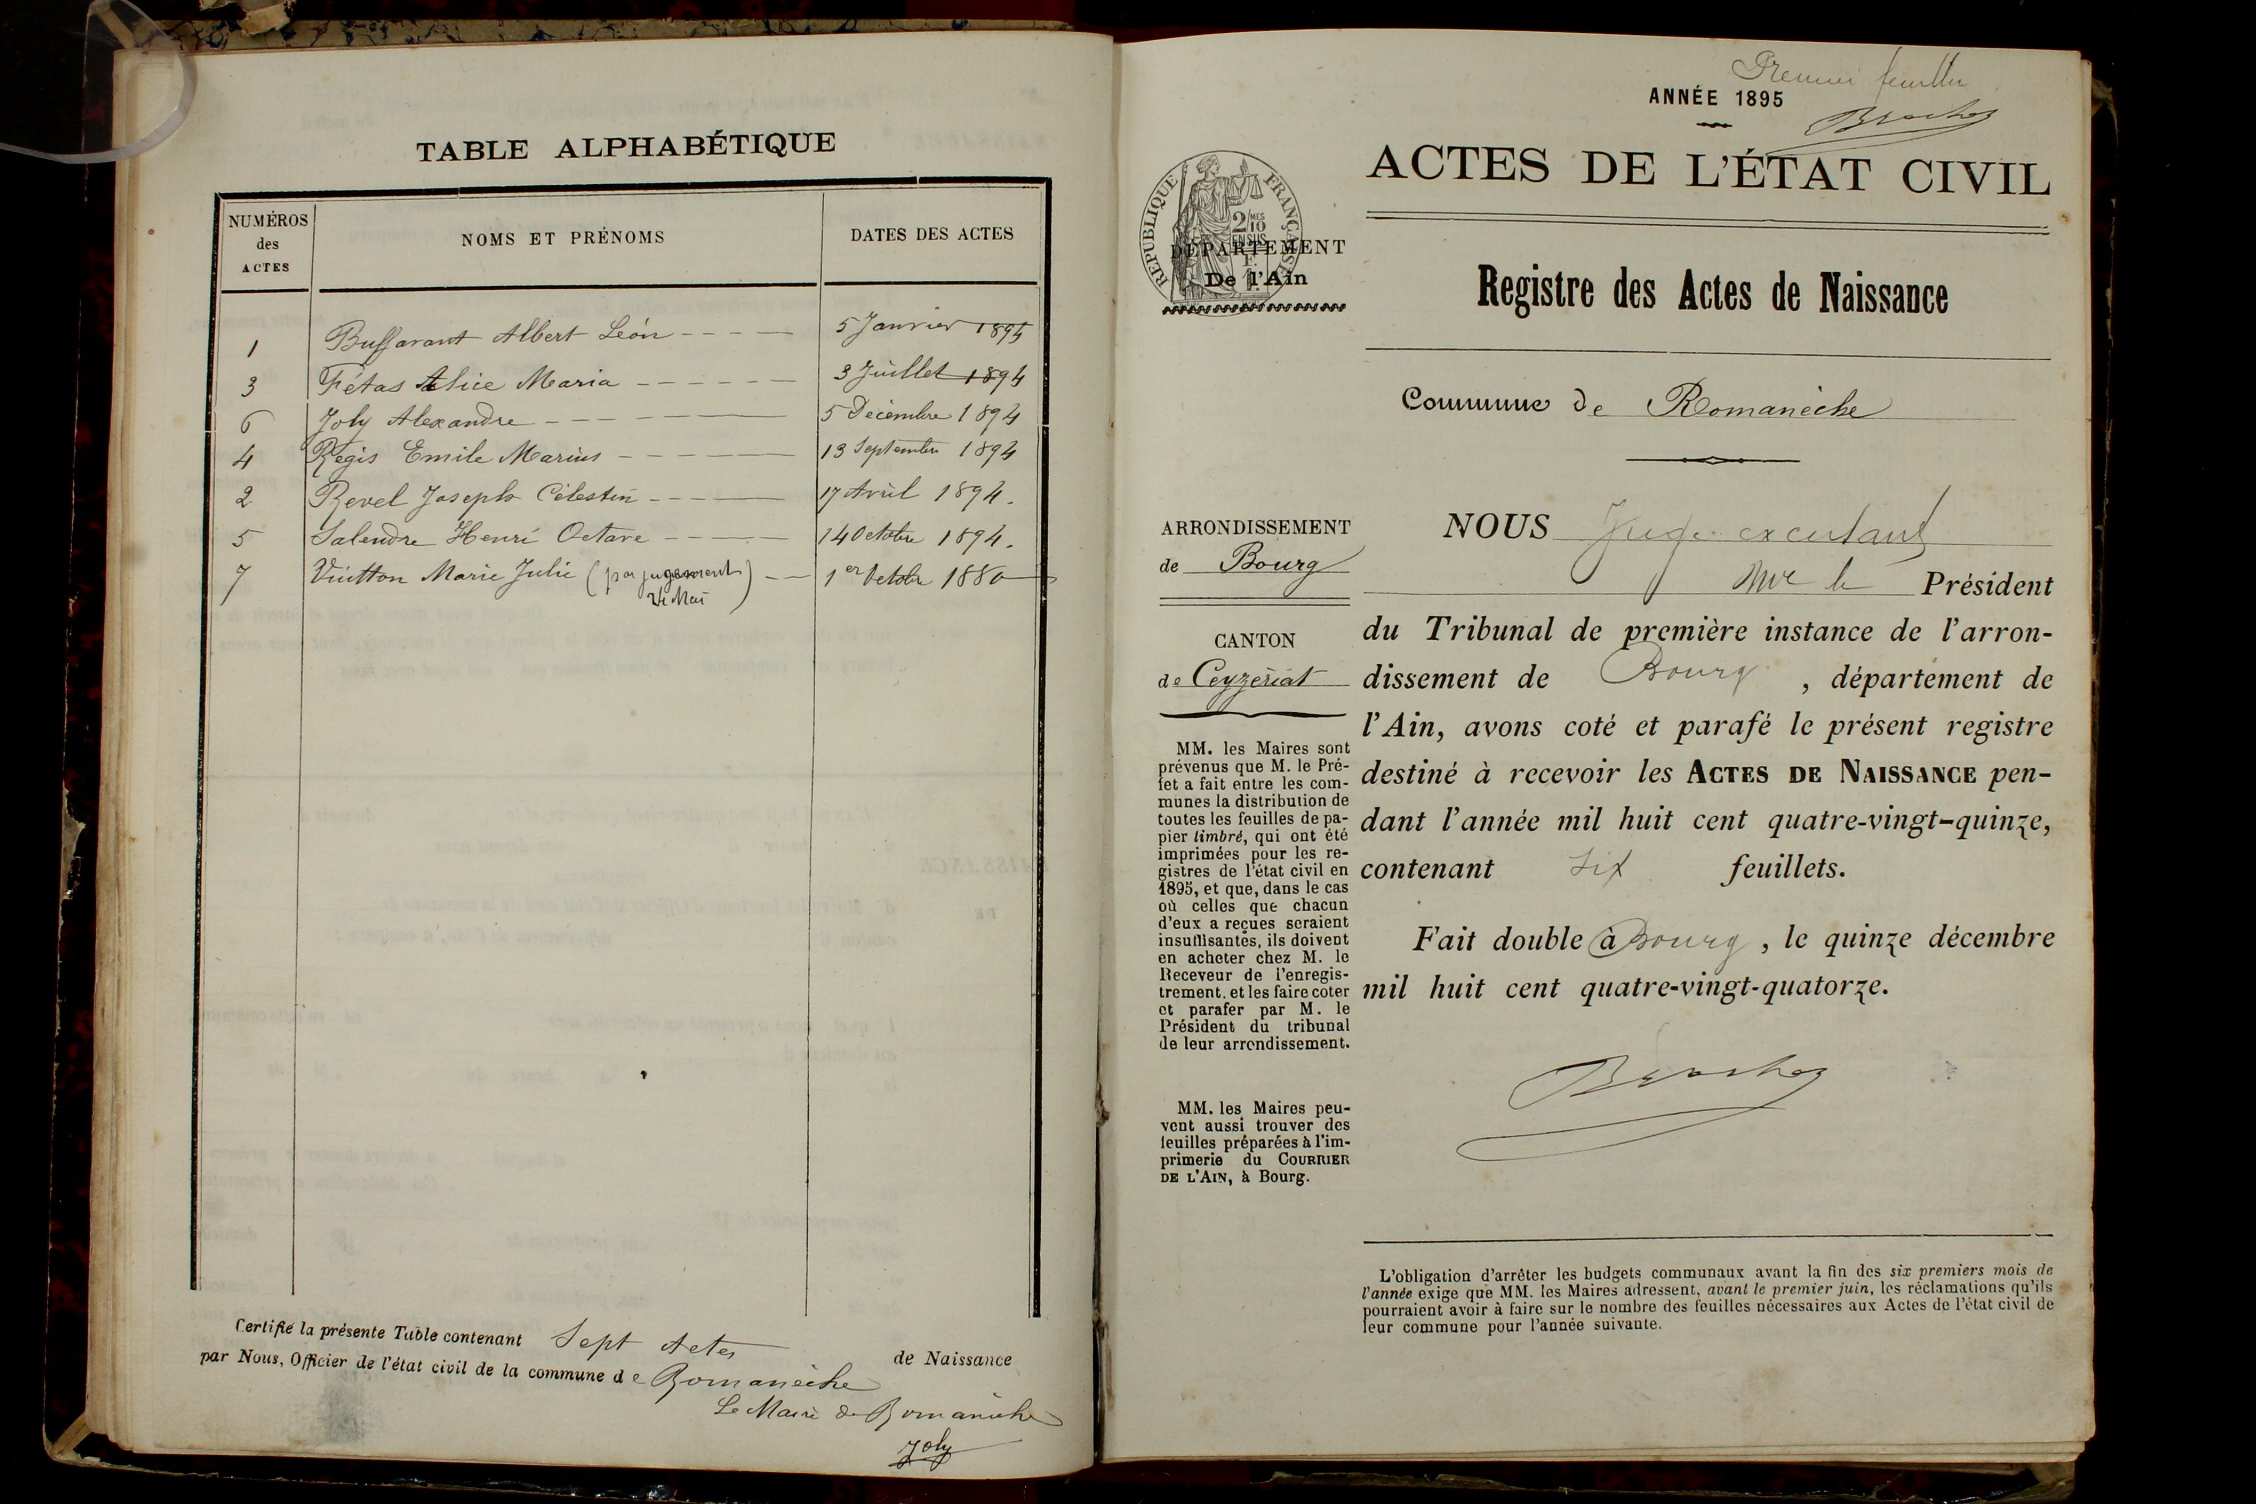 TABLE ALPHABÉTIQUE
NUMÉROS des ACTES
NOMS ET PRÉNOMS
DATES DES ACTES
1 Buffavant Albert Léon 5 Janvier 1894
3 Fétas Alice Maria 3 Juillet 1894
6 Joly Alexandre 5 Décembre 1894
4 Régis Emile Marius 13 Septembre 1894
2 Revel Joseph Célestin 17 Avril 1894.
5 Salendre Henri Octave 14 Octobre 1894.
7 Vuitton Marie Julie (par jugement 24 Mai) 1er Octobre 1880
Certifié la présente Table contenant Sept Actes de Naissance
par Nous, Officier de l'état civil de la commune de Romanèche
Le Maire de Romanèche
Joly
Premier feuillet
ANNÉE 1895
ACTES DE L'ÉTAT CIVIL
RÉPUBLIQUE FRANÇAISE
2/10 MES
EN SUS
DÉPARTEMENT
De l'Ain
Registre des Actes de Naissance
Commune de Romanèche
ARRONDISSEMENT
de Bourg
CANTON
de Ceyzériat
MM. les Maires sont
prévenus que M. le Pré-
fet a fait entre les com-
munes la distribution de
toutes les feuilles de pa-
pier timbré, qui ont été
imprimées pour les re-
gistres de l'état civil en
1895, et que, dans le cas
où celles que chacun
d'eux a reçues seraient
insuffisantes, ils doivent
en acheter chez M. le
Receveur de l'enregis-
trement. et les faire coter
et parafer par M. le
Président du tribunal
de leur arrondissement.
MM. les Maires peu-
vent aussi trouver des
feuilles préparées à l'im-
primerie du COURRIER
DE L'AIN, à Bourg.
NOUS Juge
le Président
du Tribunal de première instance de l'arron-
dissement de Bourg, département de
l'Ain, avons coté et parafé le présent registre
destiné à recevoir les ACTES DE NAISSANCE pen-
dant l'année mil huit cent quatre-vingt-quinze,
contenant six feuillets.
Fait double à Bourg, le quinze décembre
mil huit cent quatre-vingt-quatorze.
L'obligation d'arrêter les budgets communaux avant la fin des six premiers mois de
l'année exige que MM. les Maires adressent, avant le premier juin, les réclamations qu'ils
pourraient avoir à faire sur le nombre des feuilles nécessaires aux Actes de l'état civil de
leur commune pour l'année suivante.